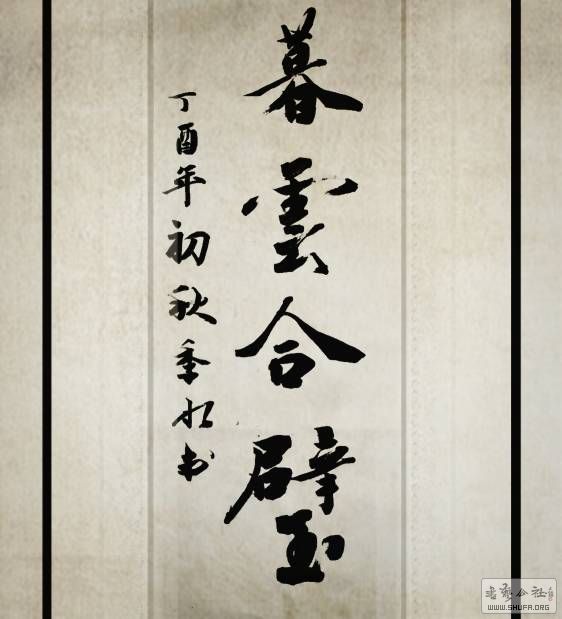 暮雲合璧
丁酉年初秋季松书
书法公社
WWW.SHUFA.ORG